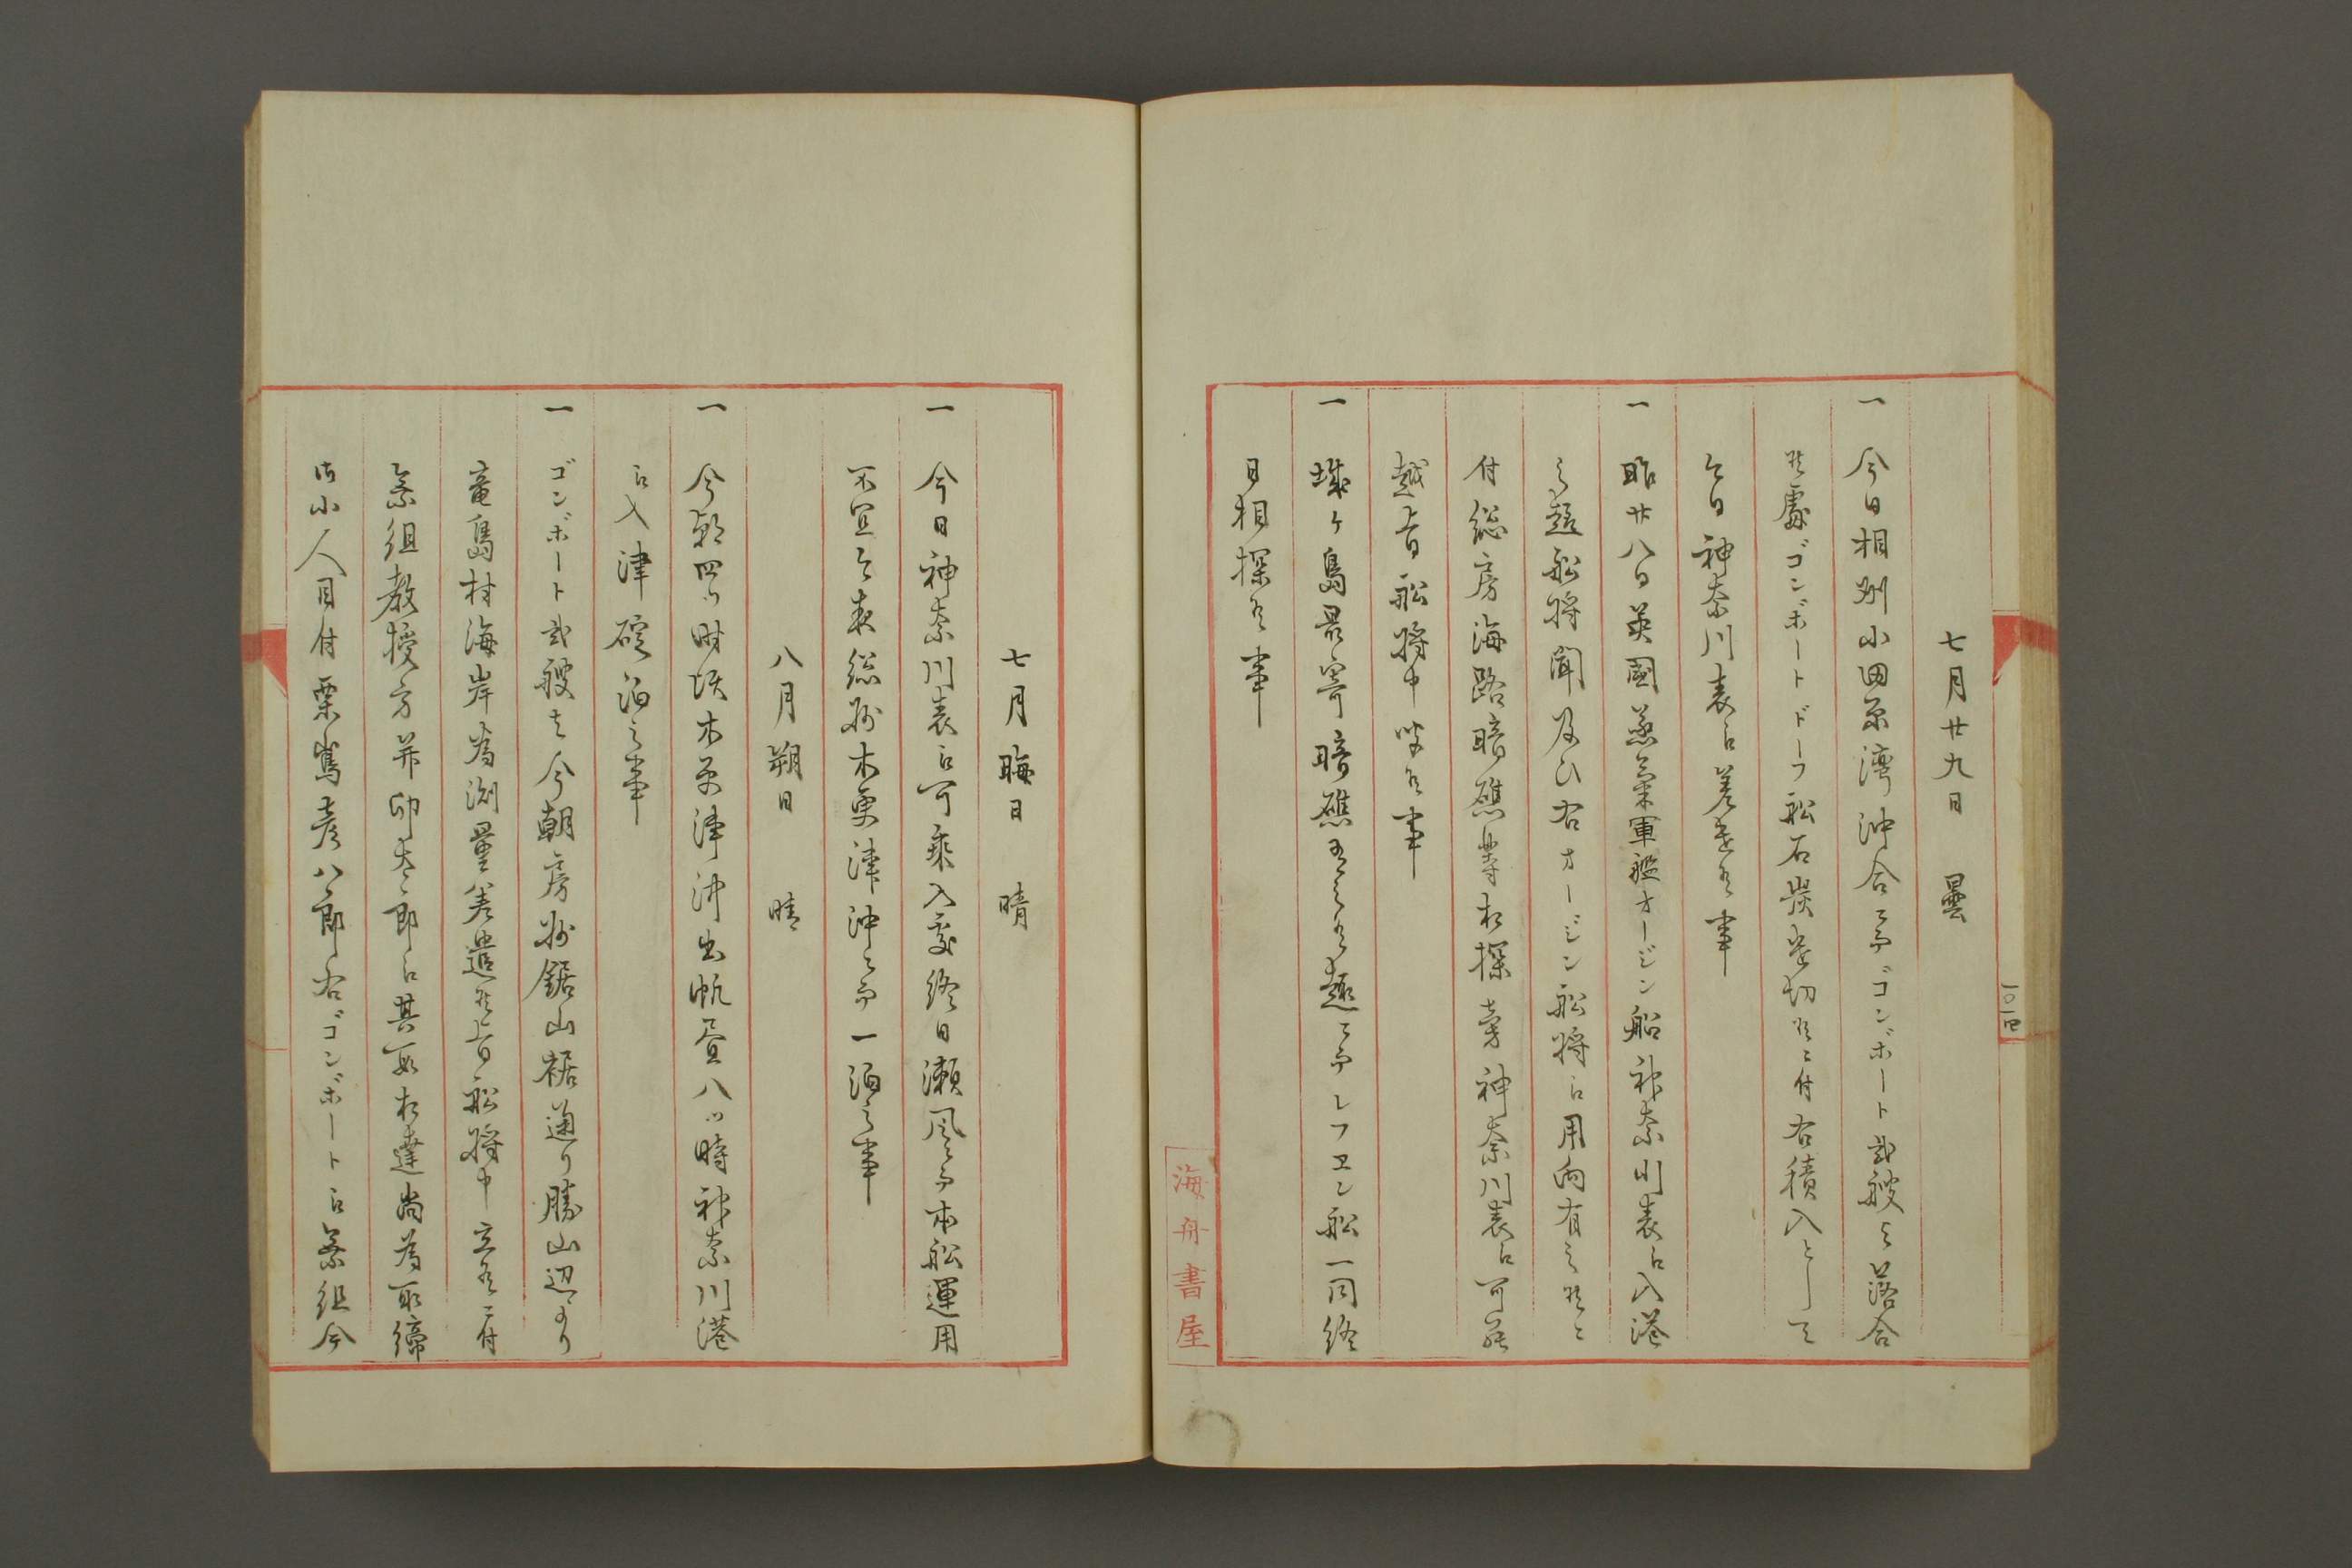 七月廿九日　曇
一　今日相州小田原湾沖合ニ而ゴンボート弐艘ニ落合
候處ゴンボートドーフ船石炭焚切候ニ付右積入として
今日神奈川表江差遣候事
一　昨廿八日英國蒸氣軍艦オージン船神奈川表江入港
之趣船将聞及ひ右オージン船将江用向有之候ニ
付総房海路暗礁等相探夫 神奈川表江可罷
越旨船将申聞候事
一　城ヶ島最寄暗礁有之候趣ニ而レフコン船一同終
日相探候事
一〇一四
海舟書屋
七月晦日　晴
一　今日神奈川表江可乗入處終日瀬風ニ而本船運用
不宜今夜総州木更津沖ニ而一泊之事
八月朔日　晴
一　今朝四ツ時頃木更津沖出帆昼八ツ時神奈川港
江入津碇泊之事
一　ゴンボート弐艘者今朝房州鋸山裾通り勝山辺より
竜島村海岸為測量差遣候旨船将申立候ニ付
乗組教授方并卯太郎江其段相達尚為取締
御小人目付栗嶌彦八郎右ゴンボート江乗組今